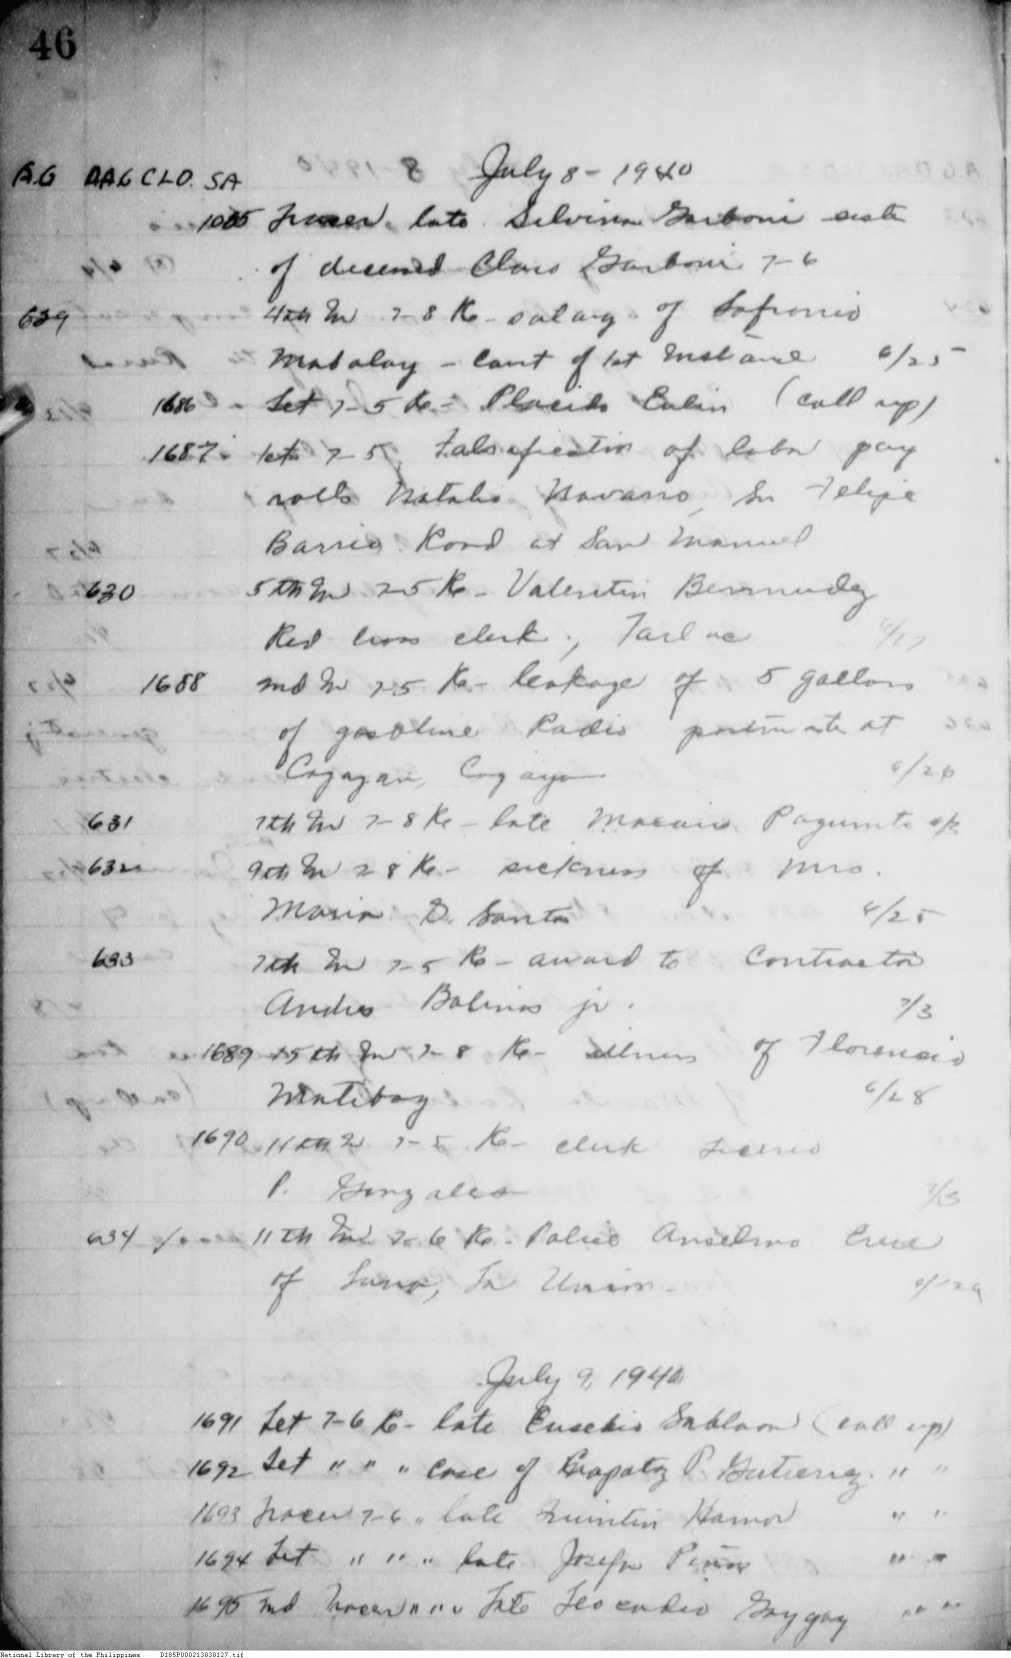 46
July 8 - 1940
A.G DAG CLO. SA
Tracer late Silvina Garboni
of deceased Claro Garboni 7-6
629 4th In 7-8 Re- salary of Sofronio
Madalay - Court of 1st Instance 6/25
1686 Let 7-5 Re- Placido (call up)
1687 Let 7-5, Falsification of labor pay
rolls Natalio Navarro, Sn Felipe
Barrio Road at San Manuel
630 5th In 7-5 Re- Valentin Bermudez
Red Cross clerk, Tarlac 6/17
1688 2nd In 7-5 Re- leakage of 5 gallons
of gasoline Radio at
Cagayan, Cagayan 6/26
631 7th In 7-8 Re- late Macario
632 9th In 7-8 Re- sickness of Mrs.
Maria D. Santos 6/25
633 7th In 7-5 Re- award to Contractor
Andres Bolinas jr. 7/3
1689 15th In 7-8 Re- illness of Florencio
Matibag 6/28
1690 11th In 7-5 Re- clerk
P. Gonzales 7/3
634 11th In 7-6 Re- Police Anselmo Cruz
of Luna, La Union 6/29
July 9, 1940
1691 Let 7-6 Re- late Eusebio Sablaon (call up)
1692 Let " " " case of P. Gutierrez " "
1693 Tracer 7-6 " late Quintin Hamor " "
1694 Let " " " late Josefa " "
1695 2nd Tracer " " " late Leocadio Gaygay " "
National Library of the Philippines D185P000213838127.tif